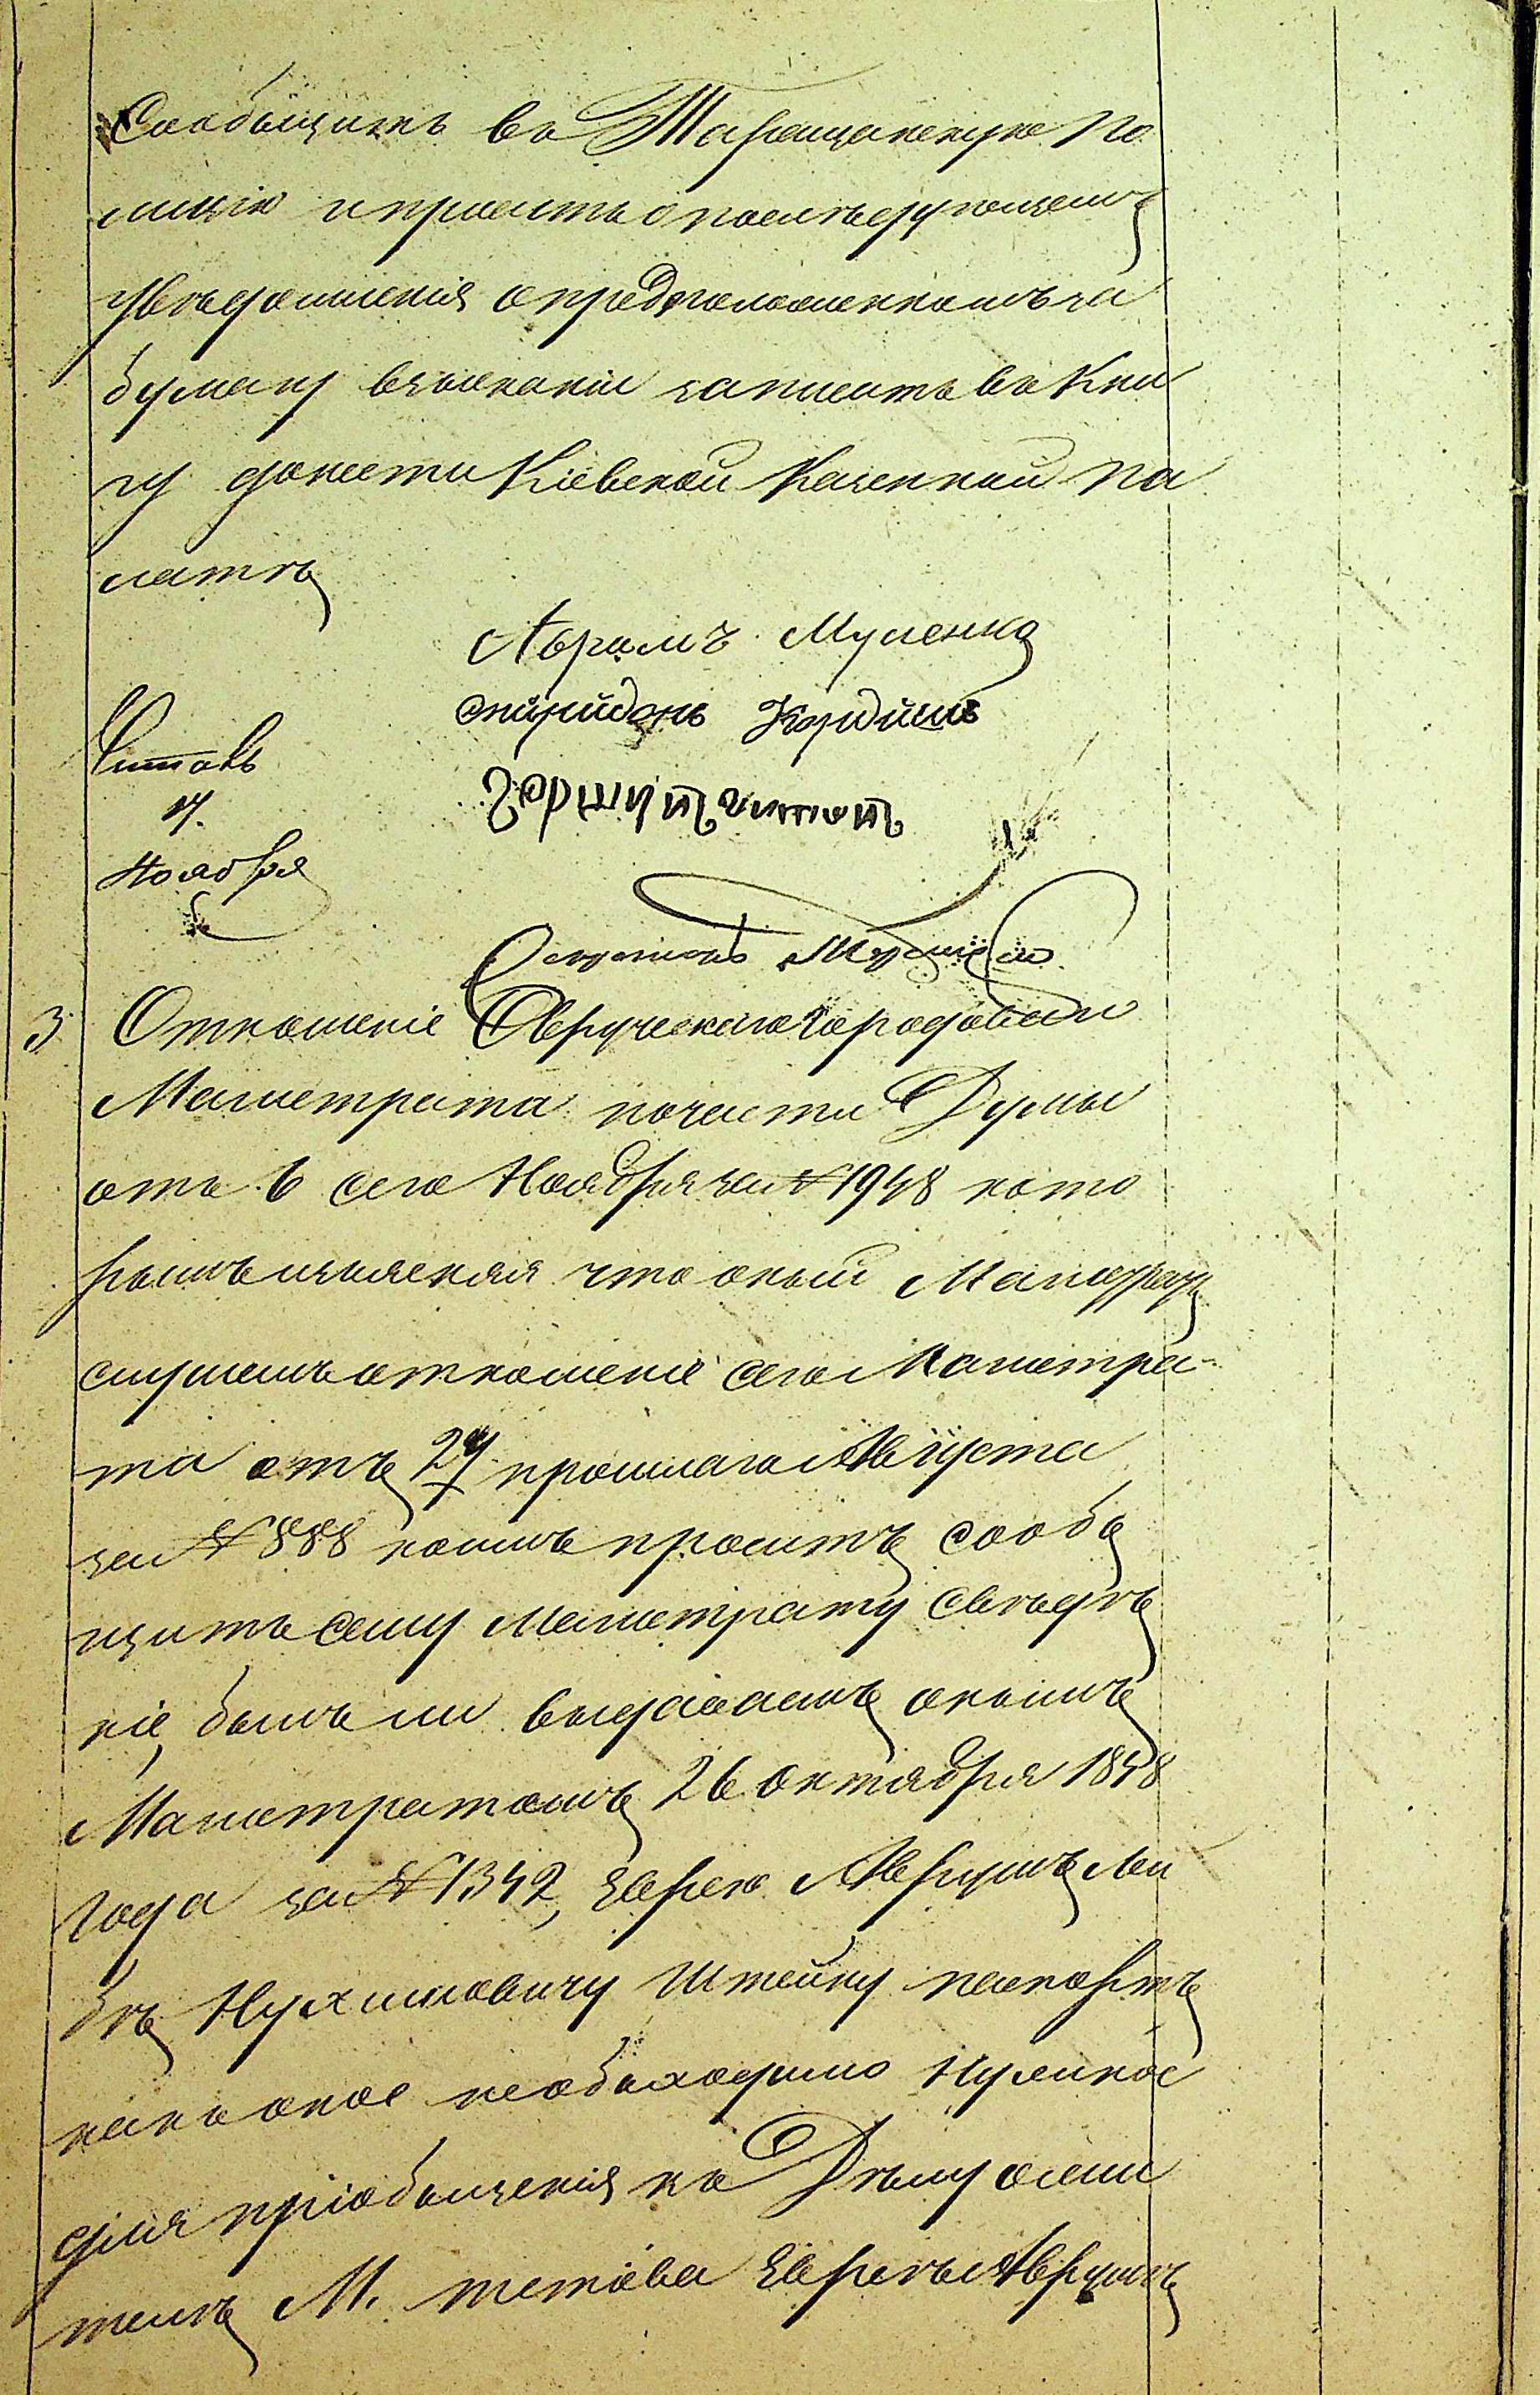 Сообщить въ Таращанскую по
лицію и просить о последующемъ
уведомленія о предположенномъ за
бумагу взысканіи записать въ Кни
гу донести Кіевской Казенной Па
латѣ
Аврамъ Мусенко
Спиридонъ
Читалъ
17.
Ноября
3 Отношеніе Овручскаго Городоваго
Магистрата по части Думы
отъ 6 сего Ноября за № 1948 кото
рымъ изъясняя что оный Магистратъ
слушалъ отношеніе сего Магистра-
та отъ 27 прошлаго Августа
за № 888 коимъ проситъ сооб
щить сему Магистрату сведѣ
ніе, былъ ли выдаваемъ онымъ
Магистратомъ 26 Октября 1848
года за № 1342, Еврею Аврумъ Лей
бѣ Нухимовичу Штейну паспортъ
какъ оное необходимо нужное
для пріобщенія къ Дѣлу о жи
телѣ М. Тетіева Евреѣ Аврумѣ